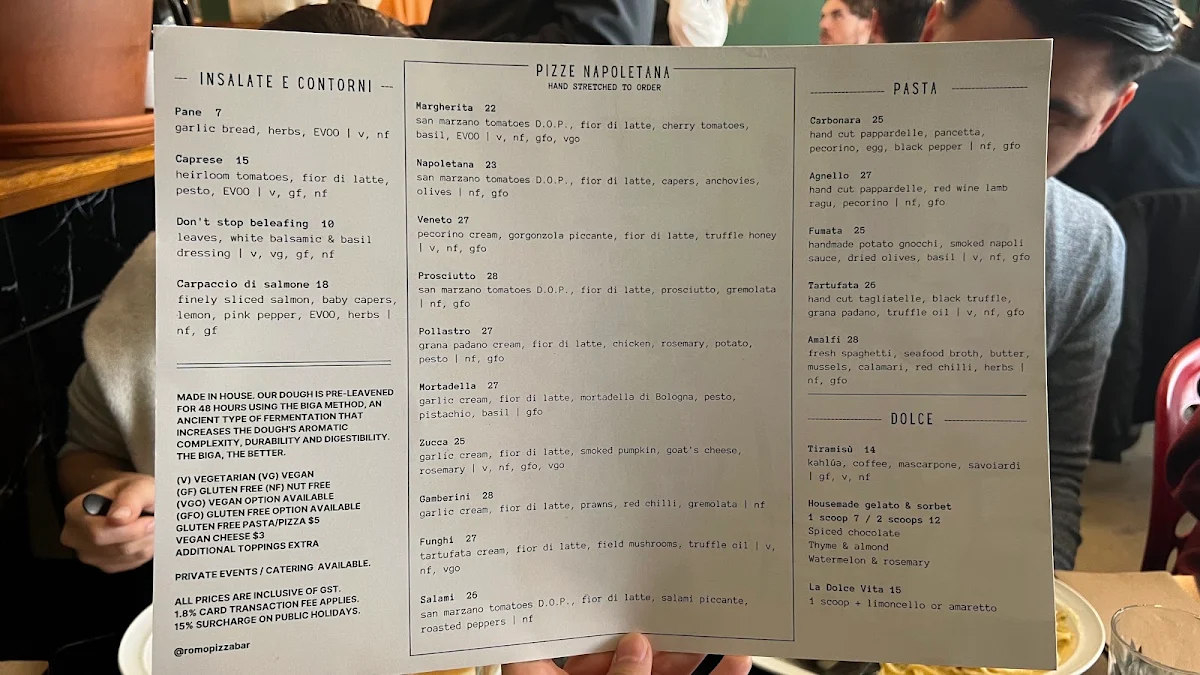 INSALATE E CONTORNI
Pane 7
garlic bread, herbs, EVOO | v, nf
Caprese 15
heirloom tomatoes, fior di latte,
pesto, EVOO | v, gf, nf
Don't stop beleafing 10
leaves, white balsamic & basil
dressing | v, vg, gf, nf
Carpaccio di salmone 18
finely sliced salmon, baby capers,
lemon, pink pepper, EVOO, herbs |
nf, gf
MADE IN HOUSE. OUR DOUGH IS PRE-LEAVENED
FOR 48 HOURS USING THE BIGA METHOD, AN
ANCIENT TYPE OF FERMENTATION THAT
INCREASES THE DOUGH'S AROMATIC
COMPLEXITY, DURABILITY AND DIGESTIBILITY.
THE BIGA, THE BETTER.
(V) VEGETARIAN (VG) VEGAN
(GF) GLUTEN FREE (NF) NUT FREE
(VGO) VEGAN OPTION AVAILABLE
(GFO) GLUTEN FREE OPTION AVAILABLE
GLUTEN FREE PASTA/PIZZA $5
VEGAN CHEESE $3
ADDITIONAL TOPPINGS EXTRA
PRIVATE EVENTS / CATERING AVAILABLE.
ALL PRICES ARE INCLUSIVE OF GST.
1.8% CARD TRANSACTION FEE APPLIES.
15% SURCHARGE ON PUBLIC HOLIDAYS.
@romopizzabar
PIZZE NAPOLETANA
HAND STRETCHED TO ORDER
Margherita 22
san marzano tomatoes D.O.P., fior di latte, cherry tomatoes,
basil, EVOO | v, nf, gfo, vgo
Napoletana 23
san marzano tomatoes D.O.P., fior di latte, capers, anchovies,
olives | nf, gfo
Veneto 27
pecorino cream, gorgonzola piccante, fior di latte, truffle honey
| v, nf, gfo
Prosciutto 28
san marzano tomatoes D.O.P., fior di latte, prosciutto, gremolata
| nf, gfo
Pollastro 27
grana padano cream, fior di latte, chicken, rosemary, potato,
pesto | nf, gfo
Mortadella 27
garlic cream, fior di latte, mortadella di Bologna, pesto,
pistachio, basil | gfo
Zucca 25
garlic cream, fior di latte, smoked pumpkin, goat's cheese,
rosemary | v, nf, gfo, vgo
Gamberini 28
garlic cream, fior di latte, prawns, red chilli, gremolata | nf
Funghi 27
tartufata cream, fior di latte, field mushrooms, truffle oil | v,
nf, vgo
Salami 26
san marzano tomatoes D.O.P., fior di latte, salami piccante,
roasted peppers | nf
PASTA
Carbonara 25
hand cut pappardelle, pancetta,
pecorino, egg, black pepper | nf, gfo
Agnello 27
hand cut pappardelle, red wine lamb
ragu, pecorino | nf, gfo
Fumata 25
handmade potato gnocchi, smoked napoli
sauce, dried olives, basil | v, nf, gfo
Tartufata 26
hand cut tagliatelle, black truffle,
grana padano, truffle oil | v, nf, gfo
Amalfi 28
fresh spaghetti, seafood broth, butter,
mussels, calamari, red chilli, herbs |
nf, gfo
DOLCE
Tiramisù 14
kahlúa, coffee, mascarpone, savoiardi
| gf, v, nf
Housemade gelato & sorbet
1 scoop 7 / 2 scoops 12
Spiced chocolate
Thyme & almond
Watermelon & rosemary
La Dolce Vita 15
1 scoop + limoncello or amaretto